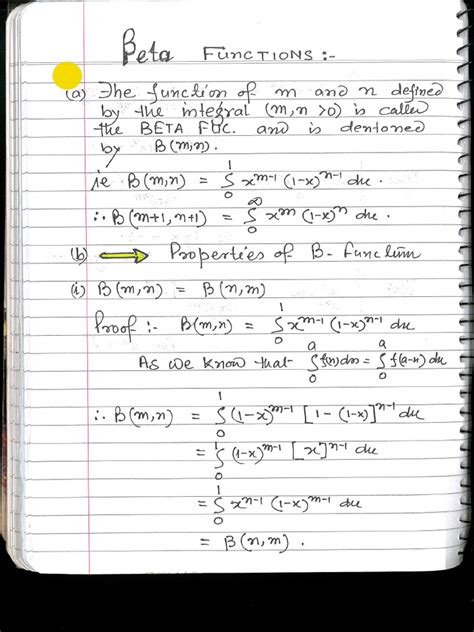 Beta FUNCTIONS :-
(a) The function of m and n defined
by the integral (m,n >0) is called
the BETA FUC. and is dentoned
by B(m,n).
ie B(m,n) = ∫₀¹ x^{m-1} (1-x)^{n-1} dx.
∴ B(m+1, n+1) = ∫₀^∞ x^m (1-x)^n dx.
(b) ⟹ Properties of B-function
(i) B(m,n) = B(n,m)
Proof :- B(m,n) = ∫₀¹ x^{m-1} (1-x)^{n-1} dx
As we know that ∫₀^a f(x)dx = ∫₀^a f(a-x) dx
∴ B(m,n) = ∫₀¹ (1-x)^{m-1} [1-(1-x)]^{n-1} dx
= ∫₀¹ (1-x)^{m-1} [x]^{n-1} dx
= ∫₀¹ x^{n-1} (1-x)^{m-1} dx
= B(n,m).